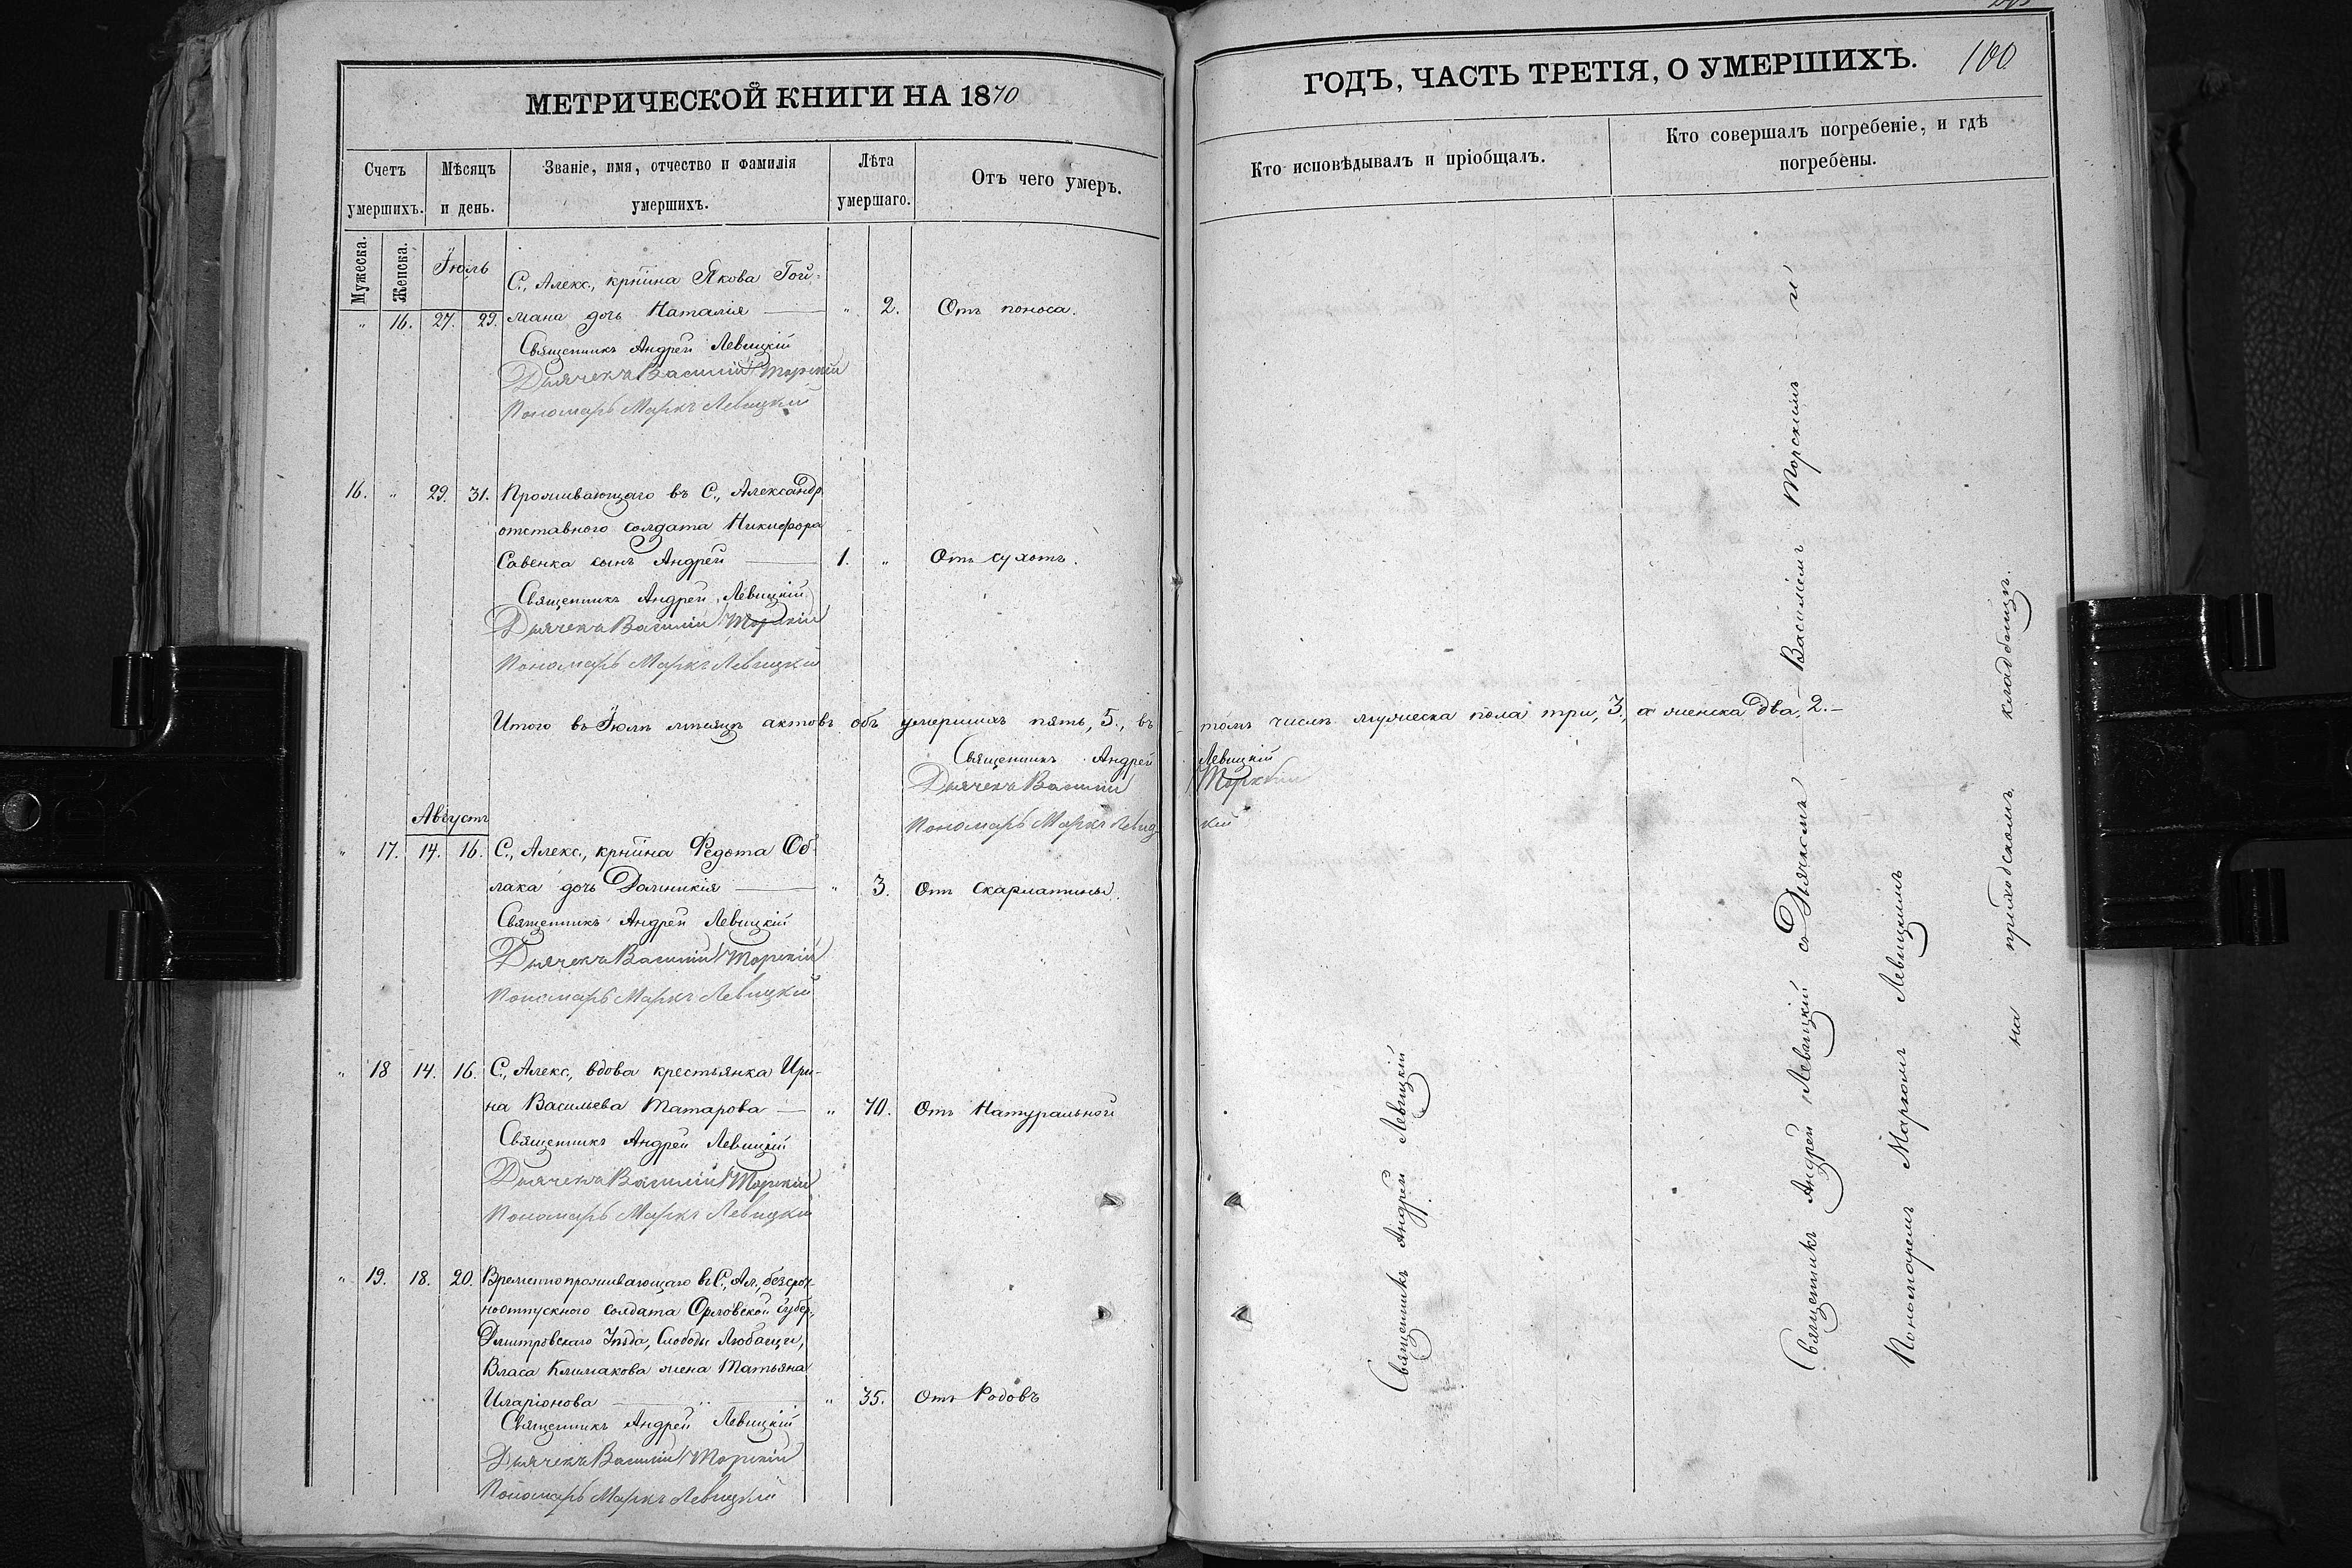 МЕТРИЧЕСКОЙ КНИГИ НА 1870
Счетъ умершихъ.
Мѣсяцъ и день.
Званіе, имя, отчество и фамилія умершихъ.
Лѣта умершаго.
Отъ чего умеръ.
Мужеска.
Женска.
Іюль
С., Алекс., крѣина Якова Гой-
" 16. 27. 29. мана дочь Наталія — " 2. Отъ поноса.
Священникъ Андрей Левицкій
Дьячекъ Василій Торскій
Пономарь Маркъ Левицкій
16. " 29. 31. Проживающаго въ С., Александр.
отставного солдата Никифора
Савенка сынъ Андрей — 1. " Отъ сухотъ.
Священникъ Андрей Левицкій
Дьячекъ Василій Торскій
Пономарь Маркъ Левицкій
Итого въ Іюлѣ мѣсяцѣ актовъ объ умершихъ пять, 5., въ томъ числѣ мужеска пола три, 3., а женска два, 2.—
Священникъ Андрей Левицкій
Дьячекъ Василій Торскій
Пономарь Маркъ Левицкій
Августъ
" 17. 14. 16. С., Алекс., крѣина Федота Об-
лака дочь Домникія — " 3. Отъ Скарлатины.
Священникъ Андрей Левицкій
Дьячекъ Василій Торскій
Пономарь Маркъ Левицкій
" 18 14. 16. С., Алекс., вдова крестьянка Ири-
на Васильева Татарова — " 70. Отъ Натуральной
Священникъ Андрей Левицкій
Дьячекъ Василій Торскій
Пономарь Маркъ Левицкій
" 19. 18. 20. Временнопроживающаго въ С., Ал., безсроч-
ноотпускного солдата Орловской губер.,
Дмитровскаго Уѣзда, Слободы Любащи,
Власа Климакова жена Татьяна
Иларіонова — " 35. Отъ Родовъ
Священникъ Андрей Левицкій
Дьячекъ Василій Торскій
Пономарь Маркъ Левицкій
ГОДЪ, ЧАСТЬ ТРЕТІЯ, О УМЕРШИХЪ.
100
Кто исповѣдывалъ и пріобщалъ.
Кто совершалъ погребеніе, и гдѣ
погребены.
Священникъ Андрей Левицкій
Священникъ Андрей Левицкій съ Дьячкомъ — Василіемъ Торскимъ — и
Пономаремъ Маркомъ Левицкимъ
на приходскомъ кладбищѣ.